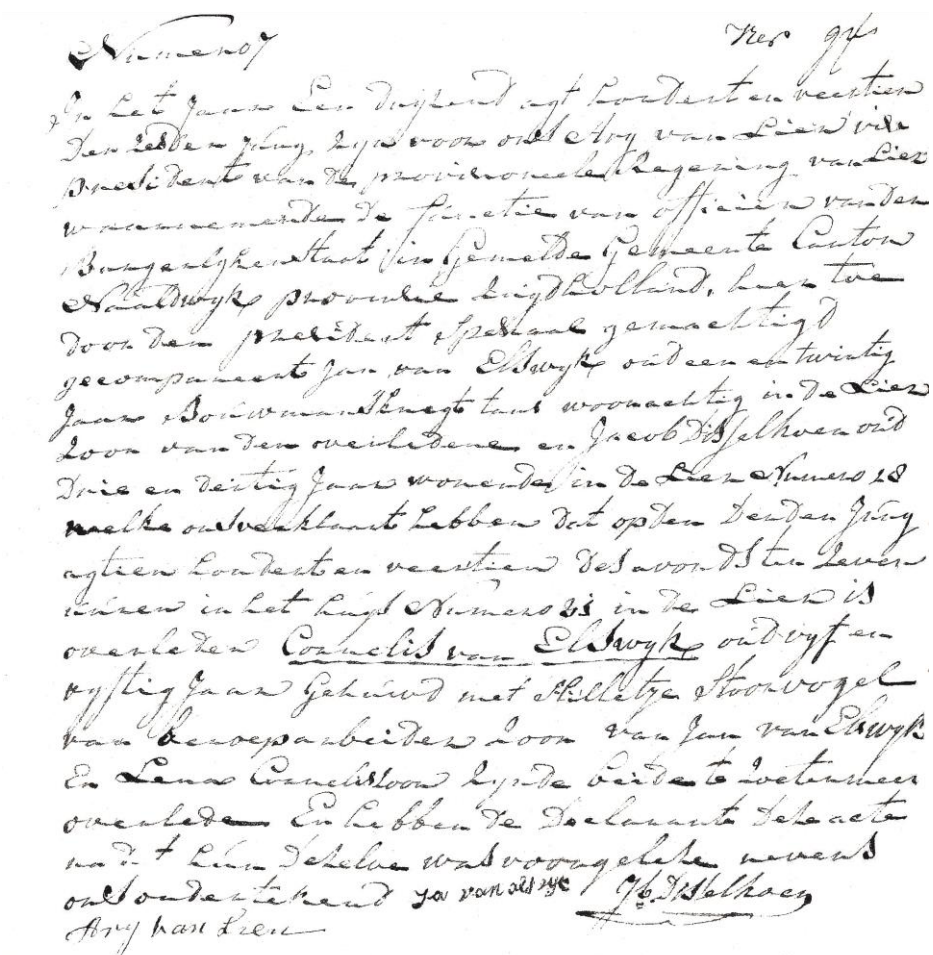 Numero 7
In het Jaar Een duijzend agt hondert en veertien
den zesden Juny, Zyn voor ons Ary van Lier vice
president van de provisioneele Regering van Lier
waarnemende de functie van officier van den
Burgerlyken Staat in Gemelde Gemeente Canton
Naaldwyk provincie Zuydholland, hier toe
door den president Speciaal gemachtigd
gecompareert Jan van Elswyk oud een en twintig
Jaar Bouwmans Knegt tans woonachtig in de Lier
Zoon van den overledene en Jacob Disselkoen oud
Drie en dertig Jaar wonende in de Lier Numero 28
welke ons verklaart hebben dat op den Derden Juny
agtien hondert en veertien des avonds ten zeven
uuren in het huys Numero 21 in de Lier is
overleden Cornelis van Elswyk oud vyf en
vyftig Jaar Gehuwd met Hilletje Stoorvogel
van beroep arbeider Zoon van Jan van Elswyk
En Lena Cornelis Zoon Zynde beide te Zoetermeer
overlede En hebben de Declarante deze acte
na dat hun dezelve was voorgeleze nevens
ons ondertekend Ja van als wyc Jb Disselkoen
Ary van Lier